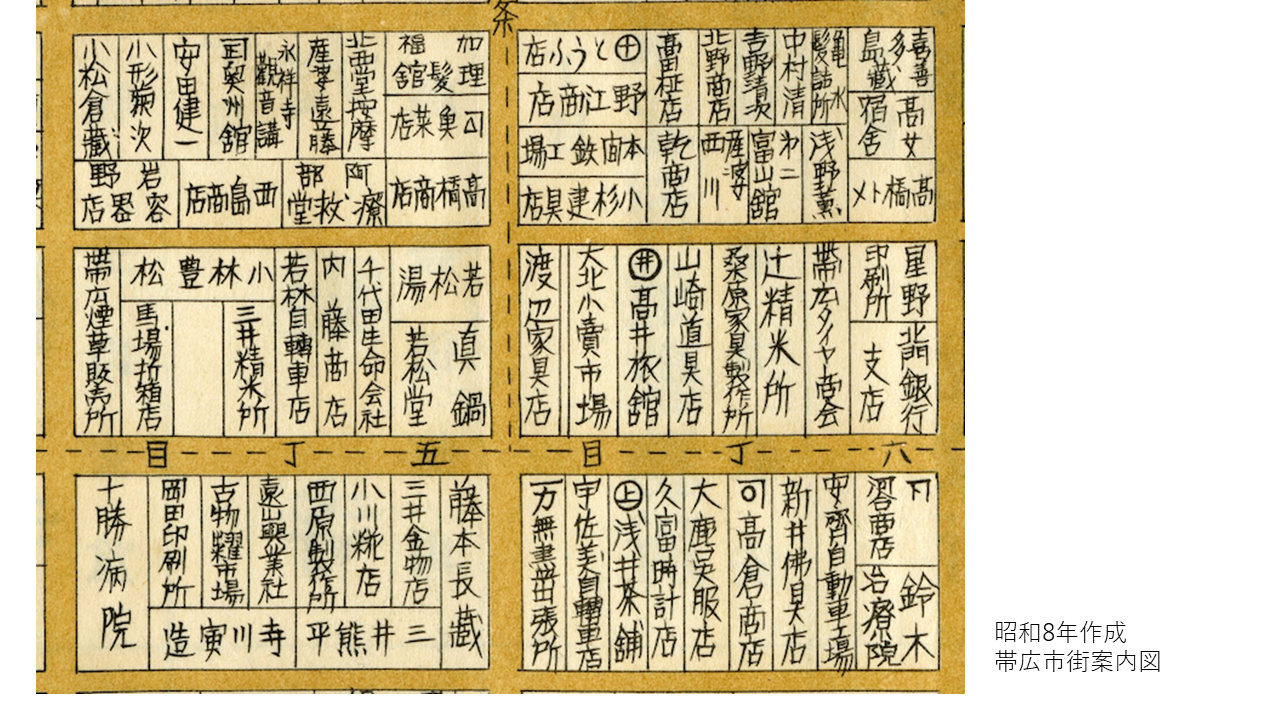 条
加理髪
福舘
北西堂按摩
産婆遠藤
永祥寺
観音講
奥州舘
安田健一
小形菊次
小松倉藏
魚菜店
高橋商店
阿部
療救堂
西島商店
岩野
容器店
喜多島
善藏
高女
宿舎
高橋トメ
亀水
髪結所
浅野薫
中村清
第二
富山舘
吉野清次
産婆
西川
北野商店
乾商店
とうふ店
野江商店
本間鉄工場
小杉建具店
若松湯
真鍋
若松堂
千代田生命会社
内藤商店
若林自轉車店
小林豊松
三井精米所
馬場折箱店
帯広煙草販売所
星野
印刷所
北門銀行
支店
帯広タイヤー商会
辻精米所
桑原家具製作所
山崎道具店
井 高井旅舘
大北小賣市場
渡辺家具店
六丁目
五丁目
藤本長藏
三井金物店
小川糀店
西原製作所
遠山興業社
古物糶市場
岡田印刷所
三井熊平
寺川寅造
十勝病院
鈴木
治療院
安齊自動車工場
新井佛具店
高倉商店
大鹿呉服店
久富時計店
上 浅井茶舗
宇佐美自轉車店
万無盡出張所
昭和8年作成
帯広市街案内図